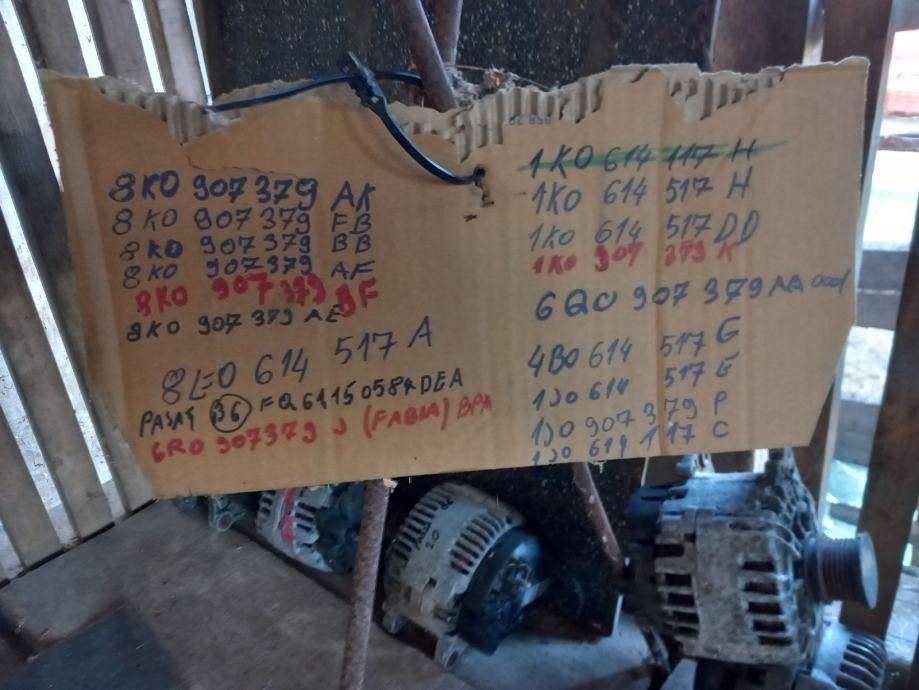 8K0 907 379 AK
8K0 907 379 FB
8K0 907379 BB
8K0 907379 AF
8K0 907 379 BF
8K0 907 379 AE
8E0 614 517 A
PASAT B6 FQ61150584DEA
6R0 907379 J (FABIA) BPA
1K0 614 117 H
1K0 614 517 H
1K0 614 517 DD
1K0 907 379 K
6Q0 907 379 AA 0001
4B0 614 517 G
1J0 614 517 E
1J0 907 379 P
1J0 614 117 C
2.0